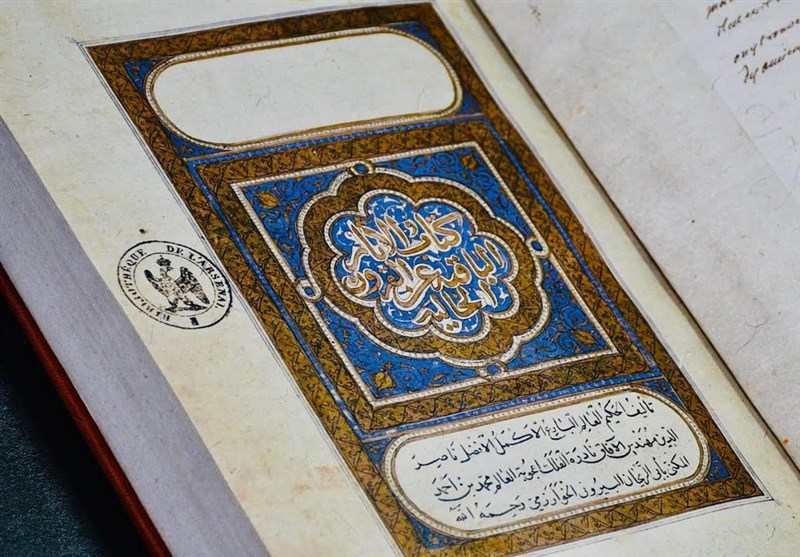 كتاب الاثار
الباقية عن القرون
الخالية
تأليف الحكيم الفاضل البارع الاكمل الافضل ناصر
الدين مهندس الآفاق نادرة الفلك اعجوبة العالم محمد بن احمد
المكنى بابي الريحان البيروني الخوارزمي رحمه الله
BIBLIOTHÈQUE DE L'ARSENAL